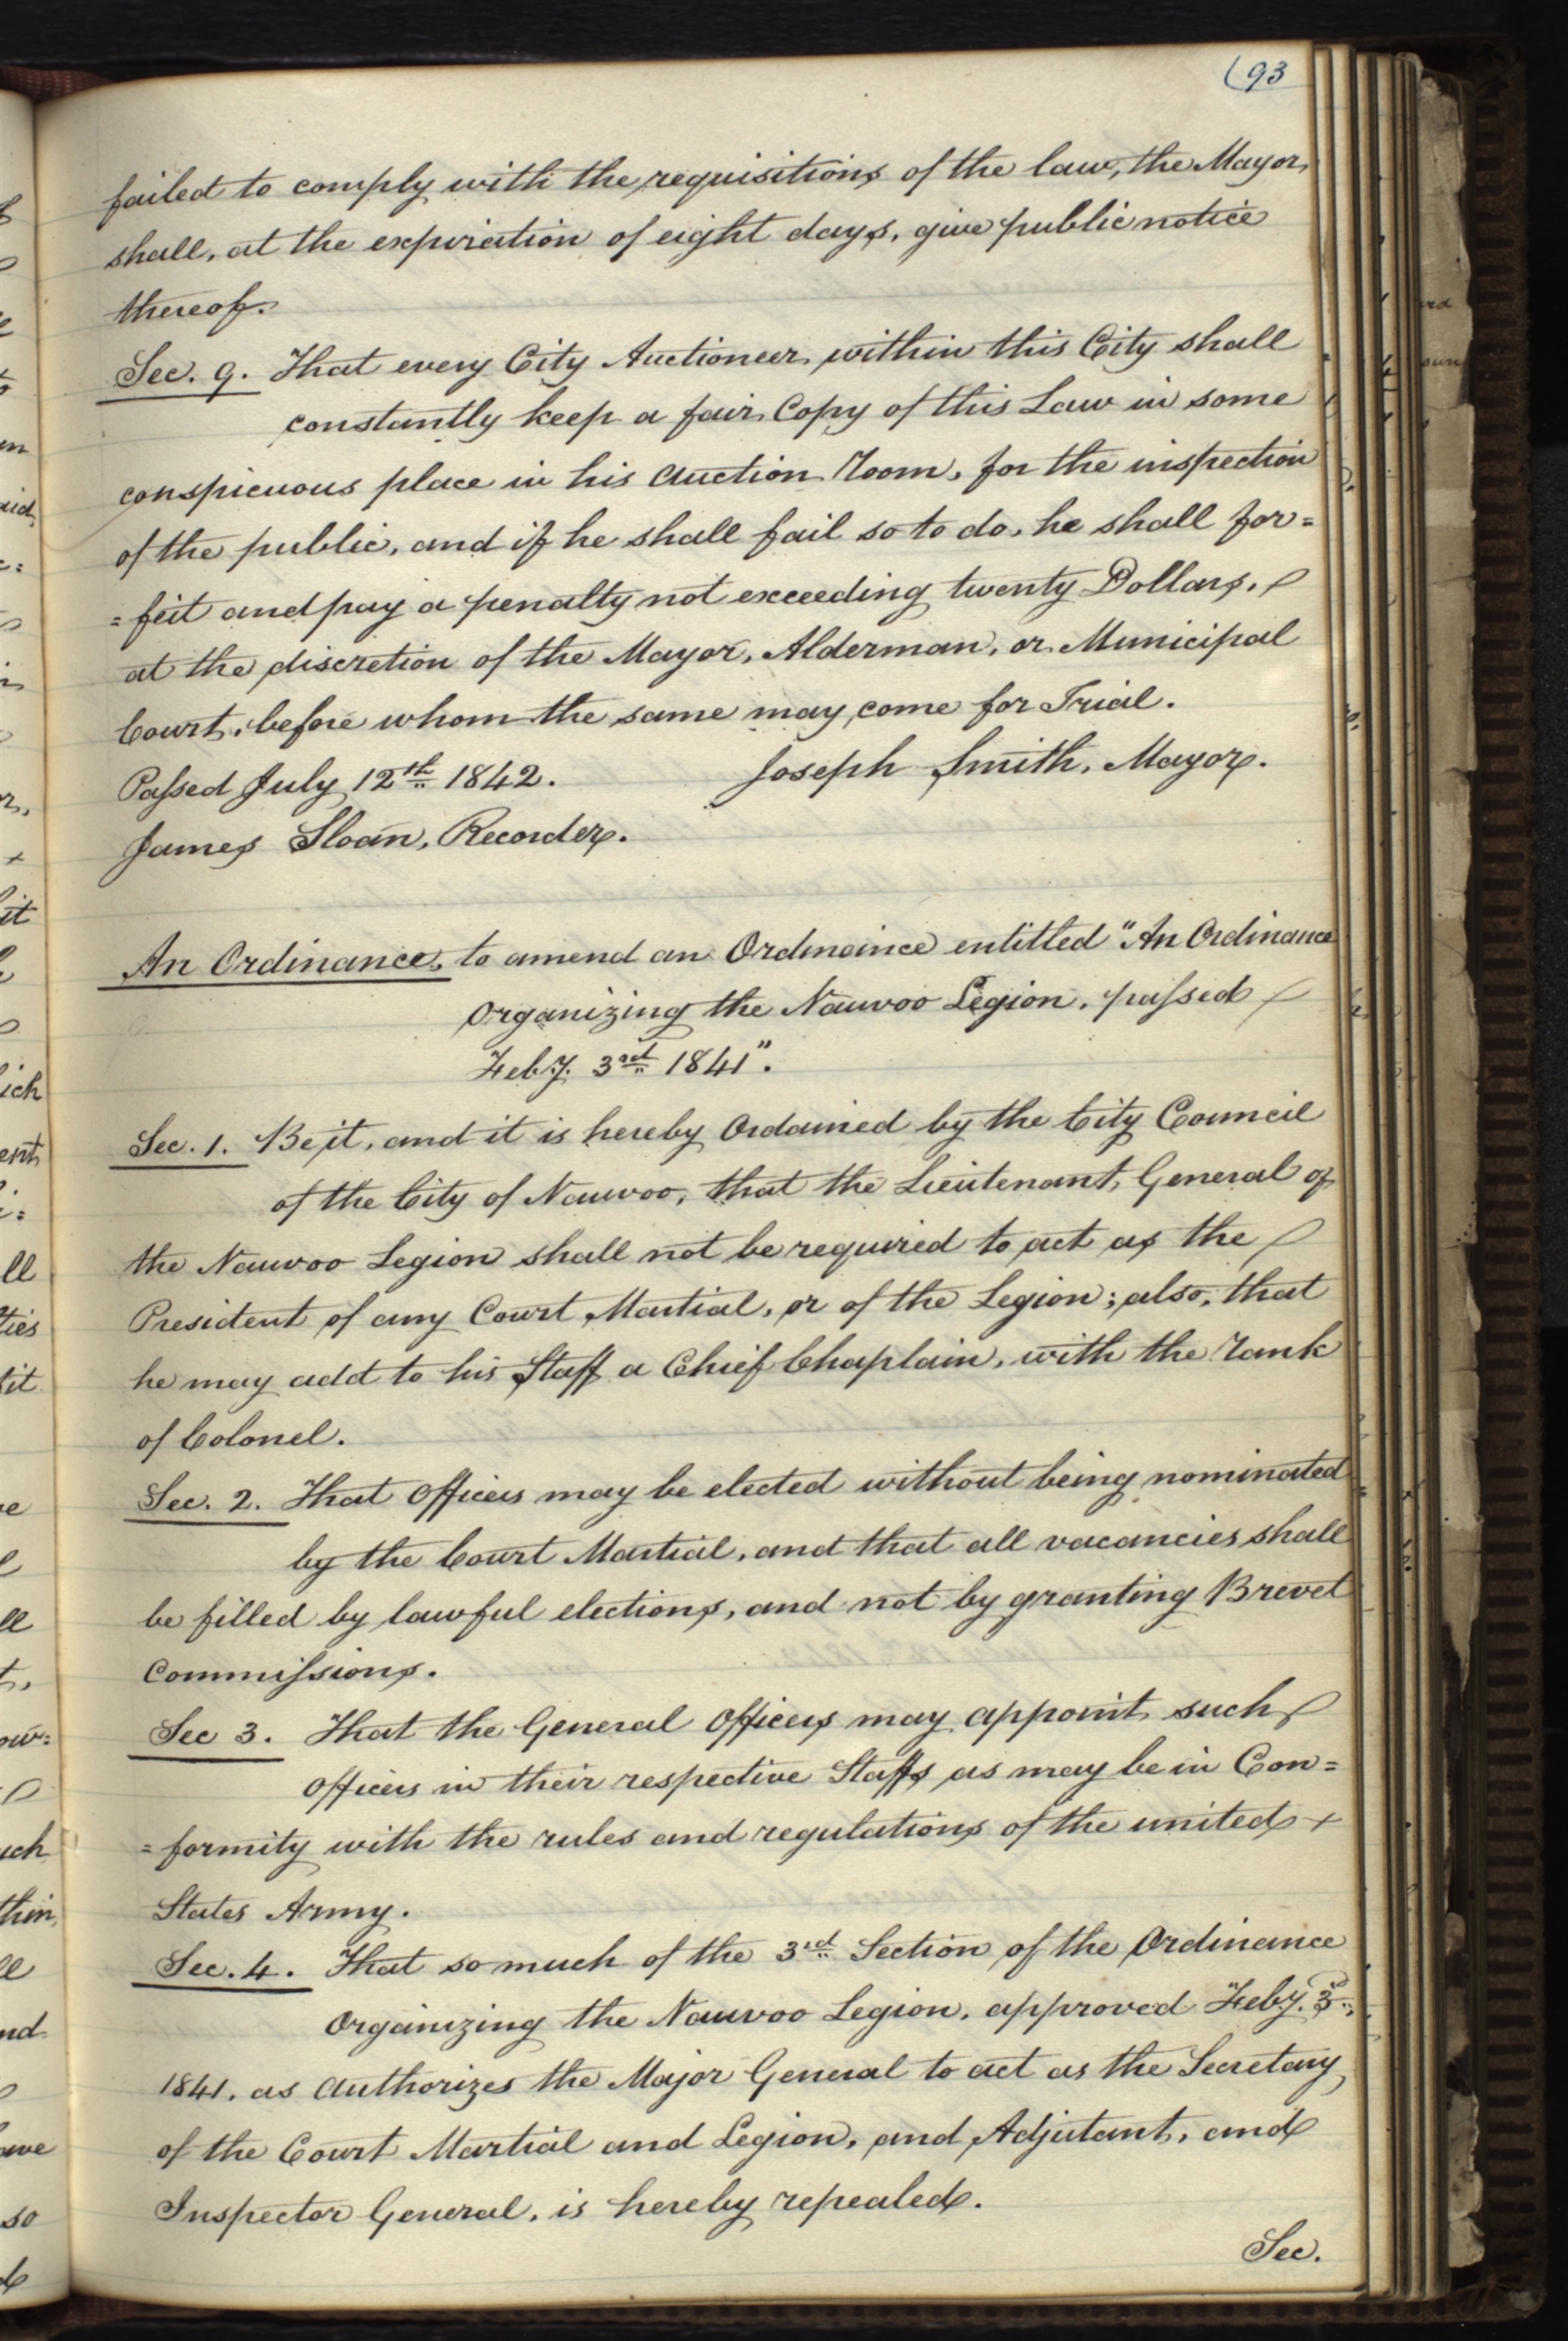 (93
failed to comply with the requisitions of the law, the Mayor
shall, at the expiration of eight days, give public notice
thereof.
Sec. 9. That every City Auctioneer within this City shall
constantly keep a fair Copy of this Law in some
conspicuous place in his Auction Room, for the inspection
of the public, and if he shall fail so to do, he shall for=
=feit and pay a penalty not exceeding twenty Dollars,
at the discretion of the Mayor, Alderman, or Municipal
Court, before whom the same may come for Trial.
Passed July 12th 1842. Joseph Smith, Mayor.
James Sloan, Recorder.
An Ordinance, to amend an Ordinance entitled "An Ordinance
Organizing the Nauvoo Legion, passed
Feby. 3rd 1841".
Sec. 1. Be it, and it is hereby Ordained by the City Council
of the City of Nauvoo, that the Lieutenant, General of
the Nauvoo Legion shall not be required to act as the
President of any Court Martial, or of the Legion; also, that
he may add to his Staff a Chief Chaplain, with the rank
of Colonel.
Sec. 2. That Officers may be elected without being nominated
by the Court Martial, and that all vacancies shall
be filled by lawful elections, and not by granting Brevet
Commissions.
Sec 3. That the General Officers may appoint such
Officers in their respective Staffs as may be in Con=
=formity with the rules and regulations of the united
States Army.
Sec. 4. That so much of the 3rd Section of the Ordinance
Organizing the Nauvoo Legion, approved Feby. 3d,
1841, as Authorizes the Major General to act as the Secretary
of the Court Martial and Legion, and Adjutant, and
Inspector General, is hereby repealed.
Sec.